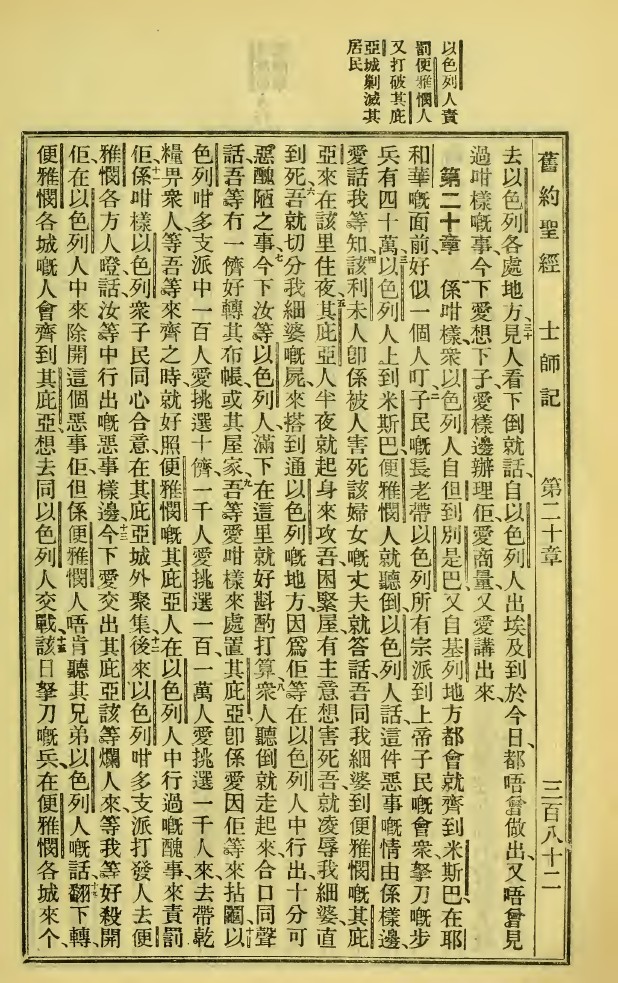 以色列人責
罰便雅憫人
又打破其庇
亞城剿滅其
居民
舊約聖經 士師記 第二十章 三百八十二
去以色列各處地方、三十見人看下倒就話、自以色列人出埃及到於今日、都唔曾做出、又唔曾見
過咁樣嘅事、今下愛想下子、愛樣邊辦理佢、愛商量、又愛講出來、
第二十章 一係咁樣、衆以色列人自但到別是巴、又自基列地方都會就齊到米斯巴、在耶
和華嘅面前、好似一個人叮、二子民嘅長老帶以色列所有宗派到上帝子民嘅會衆、拏刀嘅步
兵有四十萬、三以色列人上到米斯巴、便雅憫人就聽倒、以色列人話、這件惡事嘅情由係樣邊、
愛話我等知、四該利未人卽係被人害死該婦女嘅丈夫就答話、吾同我細婆到便雅憫嘅其庇
亞來在該里住夜、五其庇亞人半夜就起身來攻吾、困緊屋、有主意想害死吾、就凌辱我細婆、直
到死、六吾就切分我細婆嘅屍來搭到通以色列嘅地方、因爲佢等在以色列人中行出十分可
惡醜陋之事、七今下汝等以色列人、滿下在這里就好斟酌打算、八衆人聽倒就走起來合口同聲
話、吾等冇一儕好轉其布帳、或其屋家、九吾等愛咁樣來處置其庇亞、卽係愛因佢等來拈鬮、十以
色列咁多支派中一百人愛挑選十儕、一千人愛挑選一百、一萬人愛挑選一千人、來去帶乾
糧畀衆人等、吾等來齊之時就好照便雅憫嘅其庇亞人在以色列人中行過嘅醜事來責罰
佢、十一係咁樣以色列衆子民同心合意、在其庇亞城外聚集、十二後來以色列咁多支派打發人去便
雅憫各方人噔話、汝等中行出嘅惡事樣邊、十三今下愛交出其庇亞該等爛人來等我等好殺開
佢、在以色列人中來除開這個惡事佢、但係便雅憫人唔肯聽其兄弟以色列人嘅話、十四翻下轉、
便雅憫各城嘅人會齊到其庇亞、想去同以色列人交戰、十五該日拏刀嘅兵、在便雅憫各城來个、